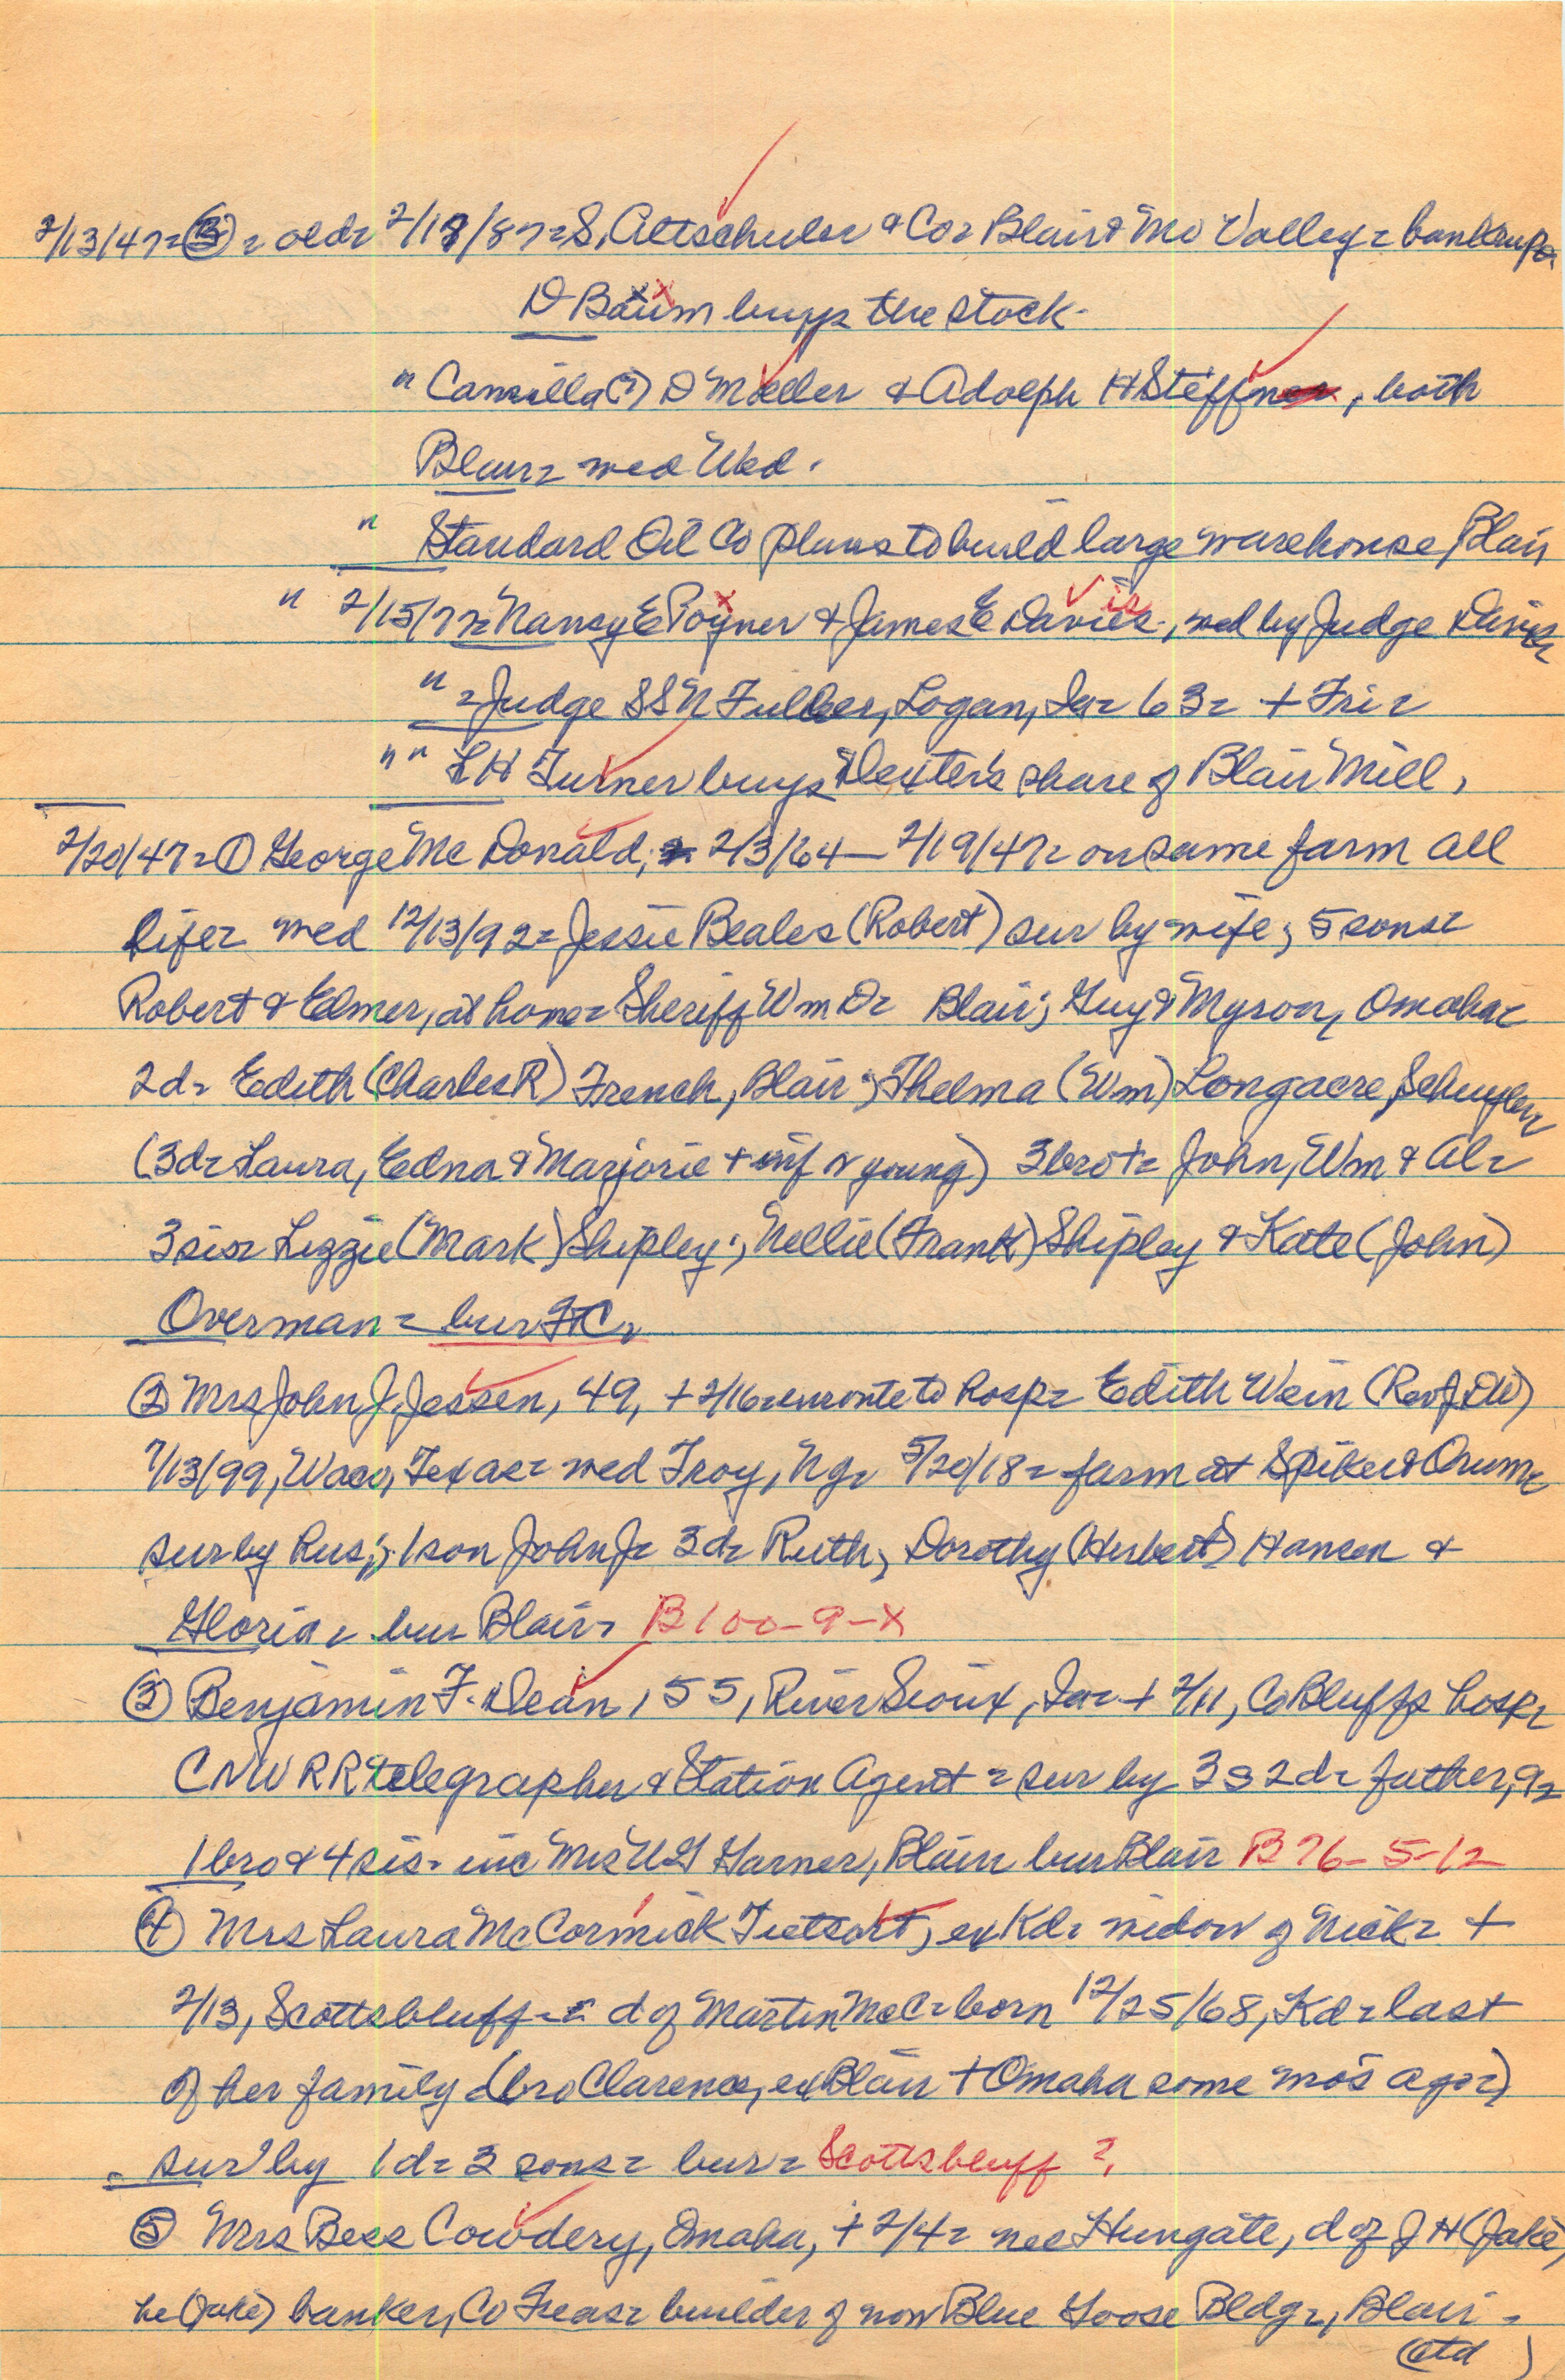 2/13/47= ③ = old= 2/18/87= S. Altschuler & Co= Blair & Mo Valley= bankrupt
D Baum buys the stock.
" Camilla(?) D Moeller & Adolph H Steffnes, both
Blair= med Wed.
" Standard Oil Co plans to build large warehouse, Blair
" 2/15/77= Nancy E Poyner & James E Davies, med by Judge Davis
" = Judge S S N Fuller, Logan, Ia= 63= + Fri=
" " L H Turner buys Dexter's share of Blair Mill,
2/20/47= ① George Mc Donald, 2/3/64— 2/19/47= on same farm all
life= med 12/13/92= Jessie Beales (Robert) sur by wife; 5 sons=
Robert & Elmer, at home= Sheriff Wm D= Blair; Guy & Myron, Omaha=
2d= Edith (Charles R) French, Blair; Thelma (Wm) Longacre, Schuyler
(3d= Laura, Edna & Marjorie + inf & young) 3 bro += John, Wm & Al=
3 sis= Lizzie (Mark) Shipley; Nellie (Frank) Shipley & Kate (John)
Overman = bur FtC=
② Mrs John J. Jessen, 49, + 2/16= enroute to hosp= Edith Wein (Rev J DW)
7/13/99, Waco, Texas= med Troy, NY= 5/20/18= farm at Spiker & Orum=
sur by hus; 1 son John Jr 3d= Ruth, Dorothy (Herbert) Hansen &
Gloria= bur Blair= B100-9-X
③ Benjamin F. Dean, 55, River Sioux, Ia= + 2/11, Co Bluffs hosp=
CNW RR telegrapher & Station Agent = sur by 3s 2d= father, 92
1 bro & 4 sis. inc Mrs U G Garner, Blair bur Blair B76-5-12
④ Mrs Laura McCormick Tietsort, ex Kd= widow of Nick= +
2/13, Scottsbluff= d of Martin McC= born 12/25/68, Kd= last
of her family (bro Clarence, ex Blair + Omaha some mos ago=)
sur by 1d= 3 sons= bur= Scottsbluff ?
⑤ Mrs Bess Cowdery, Omaha, + 2/4= nee Hungate, d of J H (Jake)
he (Jake) banker, Co Treas= builder of now Blue Goose Bldg=, Blair=
(ctd )